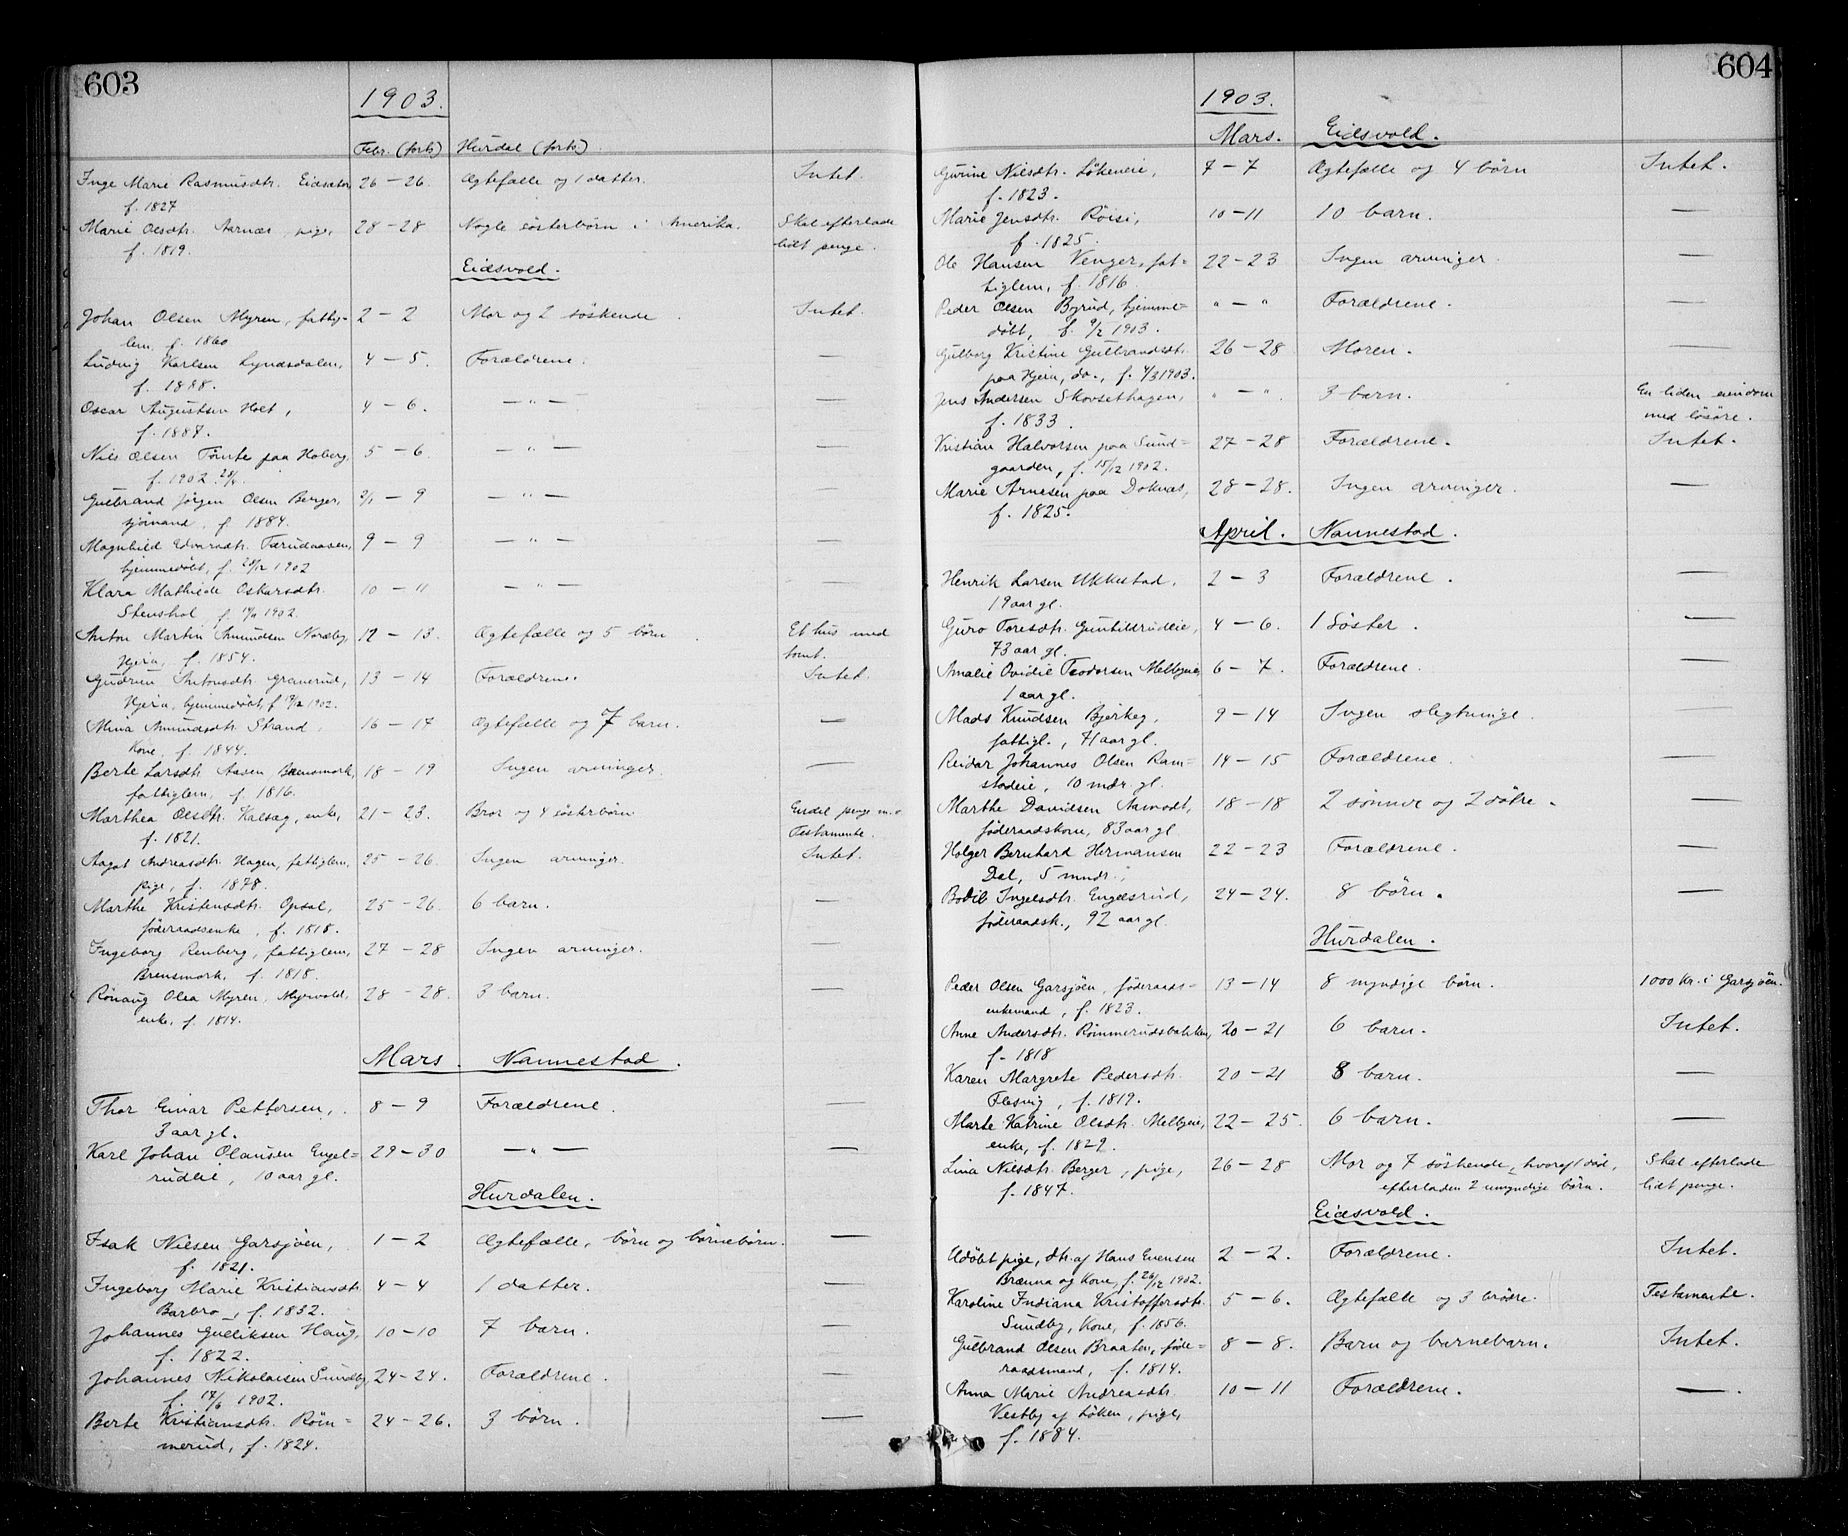 603
1903.
Febr. (forts) Hurdal (forts)
Inge Marie Rasmusdtr. Eidsæter 26 – 26 Ægtefælle og 1 datter. Intet.
f. 1827
Marie Olsdtr. Aarnæs, pige, 28 – 28 Nogle søsterbørn i Amerika. Skal efterlade
f. 1819. lidt penge.
Eidsvold.
Johan Olsen Myren, fattig- 2 – 2 Mor og 2 søskende Intet.
lem, f. 1860
Ludvig Karlsen Lyndsdalen, 4 – 5. Forældrene. —
f. 1888.
Oscar Augustsen Holt, 4 – 6. — " — —
f. 1887.
Nils Olsen Tømte paa Hoberg 5 – 6 — " — —
f. 1902
Gulbrand Jørgen Olsen Berger, – 9 — " — —
sjømand, f. 1884.
Magnhild Edvardsdtr. 9 – 9 — " — —
hjemmedøbt, f. 1902
Klara Mathilde Oskarsdtr. 10 – 11 — " — —
Stenshol f. 1902.
Anton Martin Amundsen Nordby 12 – 13. Ægtefælle og 5 børn Et hus med
Hjera, f. 1854. tomt.
Gudrun Antonsdtr. Granerud, 13 – 14 Forældrene. Intet.
Hjera, hjemmedøbt, f. 1902.
Mina Amundsdtr. Strand 16 – 17 Ægtefælle og 7 barn. —
Kone, f. 1844.
Berte Larsdtr. Aasen, Brensmork, 18 – 19 Ingen arvinger. —
fattiglem, f. 1816.
Marthea Olsdtr. Kalsæg, enke, 21 – 23. Bror og 4 søsterbørn Endel penge m.
f. 1821. Testamente.
Aagot Andreasdtr. Hagen, fattiglem, 25 – 26. Ingen arvinger. Intet.
pige, f. 1878.
Marthe Kristensdtr. Opsal, 25 – 26. 6 barn. —
føderaadsenke, f. 1818.
Ingeborg Renberg, fattiglem, 27 – 28 Ingen arvinger. —
Brensmork, f. 1818.
Rønaug Olea Myren, Myrvold, 28 – 28. 3 barn. —
enke, f. 1814.
Mars. Nannestad.
Thor Einar Pettersen, 8 – 9 Forældrene. —
3 aar gl.
Karl Johan Olausen Engel- 29 – 30 — " — —
rudeie, 10 aar gl.
Hurdalen.
Isak Nilsen Garsjøen, 1 – 2 Ægtefælle, børn og børnebørn. —
f. 1821.
Ingeborg Marie Kristiansdtr. 4 – 4 1 datter. —
Barbro, f. 1832.
Johannes Gulliksen Haug, 10 – 10 7 barn. —
f. 1822.
Johannes Nikolaisen Sundby, 24 – 24. Forældrene. —
f. 1902.
Berte Kristiansdtr. Røm- 24 – 26. 3 børn. —
merud, f. 1824.
604
1903.
Mars. Eidsvold.
Gurine Nilsdtr. Løkeneie, 7 – 7 Ægtefælle og 4 børn Intet.
f. 1823.
Marie Jensdtr. Røisi, 10 – 11 10 barn. —
f. 1825.
Ole Hansen Venger, fat- 22 – 23 Ingen arvinger. —
tiglem, f. 1816.
Peder Olsen Byrud, hjemme- " – " Forældrene. —
døbt, f. 9/2 1903.
Gulborg Kristine Gulbrandsdtr. 26 – 28 Moren. —
paa Hjera, do., f. 4/3 1903.
Jens Andersen Skovsethagen, " – ". 3 barn. En liden eiendom
f. 1833. med løsøre.
Kristian Halvorsen paa Sund- 27 – 28 Forældrene. Intet.
gaarden, f. 15/12 1902.
Marie Arnesen paa Doknæs, 28 – 28. Ingen arvinger. —
f. 1825.
April. Nannestad.
Henrik Larsen Ukkestad. 2 – 3 Forældrene. —
19 aar gl.
Guro Toresdtr. Gunhildrudeie, 4 – 6. 1 søster. —
73 aar gl.
Amalie Ovidie Teodorsen Melbyeie, 6 – 7. Forældrene. —
1 aar gl.
Mads Knudsen Bjerkeg, 9 – 14 Ingen slegtninge. —
fattigl., 71 aar gl.
Reidar Johannes Olsen Ram- 14 – 15 Forældrene. —
stadeie, 10 mdr. gl.
Marthe Davidsen Aamodt, 18 – 18 2 sønner og 2 døtre. —
føderaadskone, 83 aar gl.
Holger Bernhard Hermansen 22 – 23 Forældrene. —
Dal, 5 mndr.
Bodil Ingelsdtr. Engelsrud, 24 – 24. 8 børn. —
føderaadsk., 92 aar gl.
Hurdalen.
Peder Olsen Garsjøen, føderaads- 13 – 14 8 myndige børn. 1000 Kr. i Garsjøen.
enkemand, f. 1823.
Anne Andersdtr. Rømmerudsbakken, 20 – 21 6 barn. Intet.
f. 1818
Karen Margrete Pedersdtr. 20 – 21 8 barn. —
Flesvig, f. 1819.
Marte Katrine Olsdtr. Melbyeie, 22 – 25. 6 barn. —
enke, f. 1829.
Lina Nilsdtr. Berger, pige, 26 – 28 Mor og 7 søskende, hvoraf 1 død, Skal efterlade
f. 1847. efterladen 2 umyndige børn. lidt penge.
Eidsvold.
Udøbt pige, dtr. af Hans Evensen 2 – 2. Forældrene. Intet.
Brænna og Kone, f. 26/12 1902.
Karoline Indiana Kristoffersdtr. 5 – 6. Ægtefælle og 3 brødre. Testamente.
Sundby, Kone, f. 1856.
Gulbrand Olsen Braaten, føde- 8 – 8. Barn og barnebarn. Intet.
raadsmand, f. 1814.
Anna Marie Andreasdtr. 10 – 11 Forældrene. —
Vestby af Løken, pige,
f. 1884.